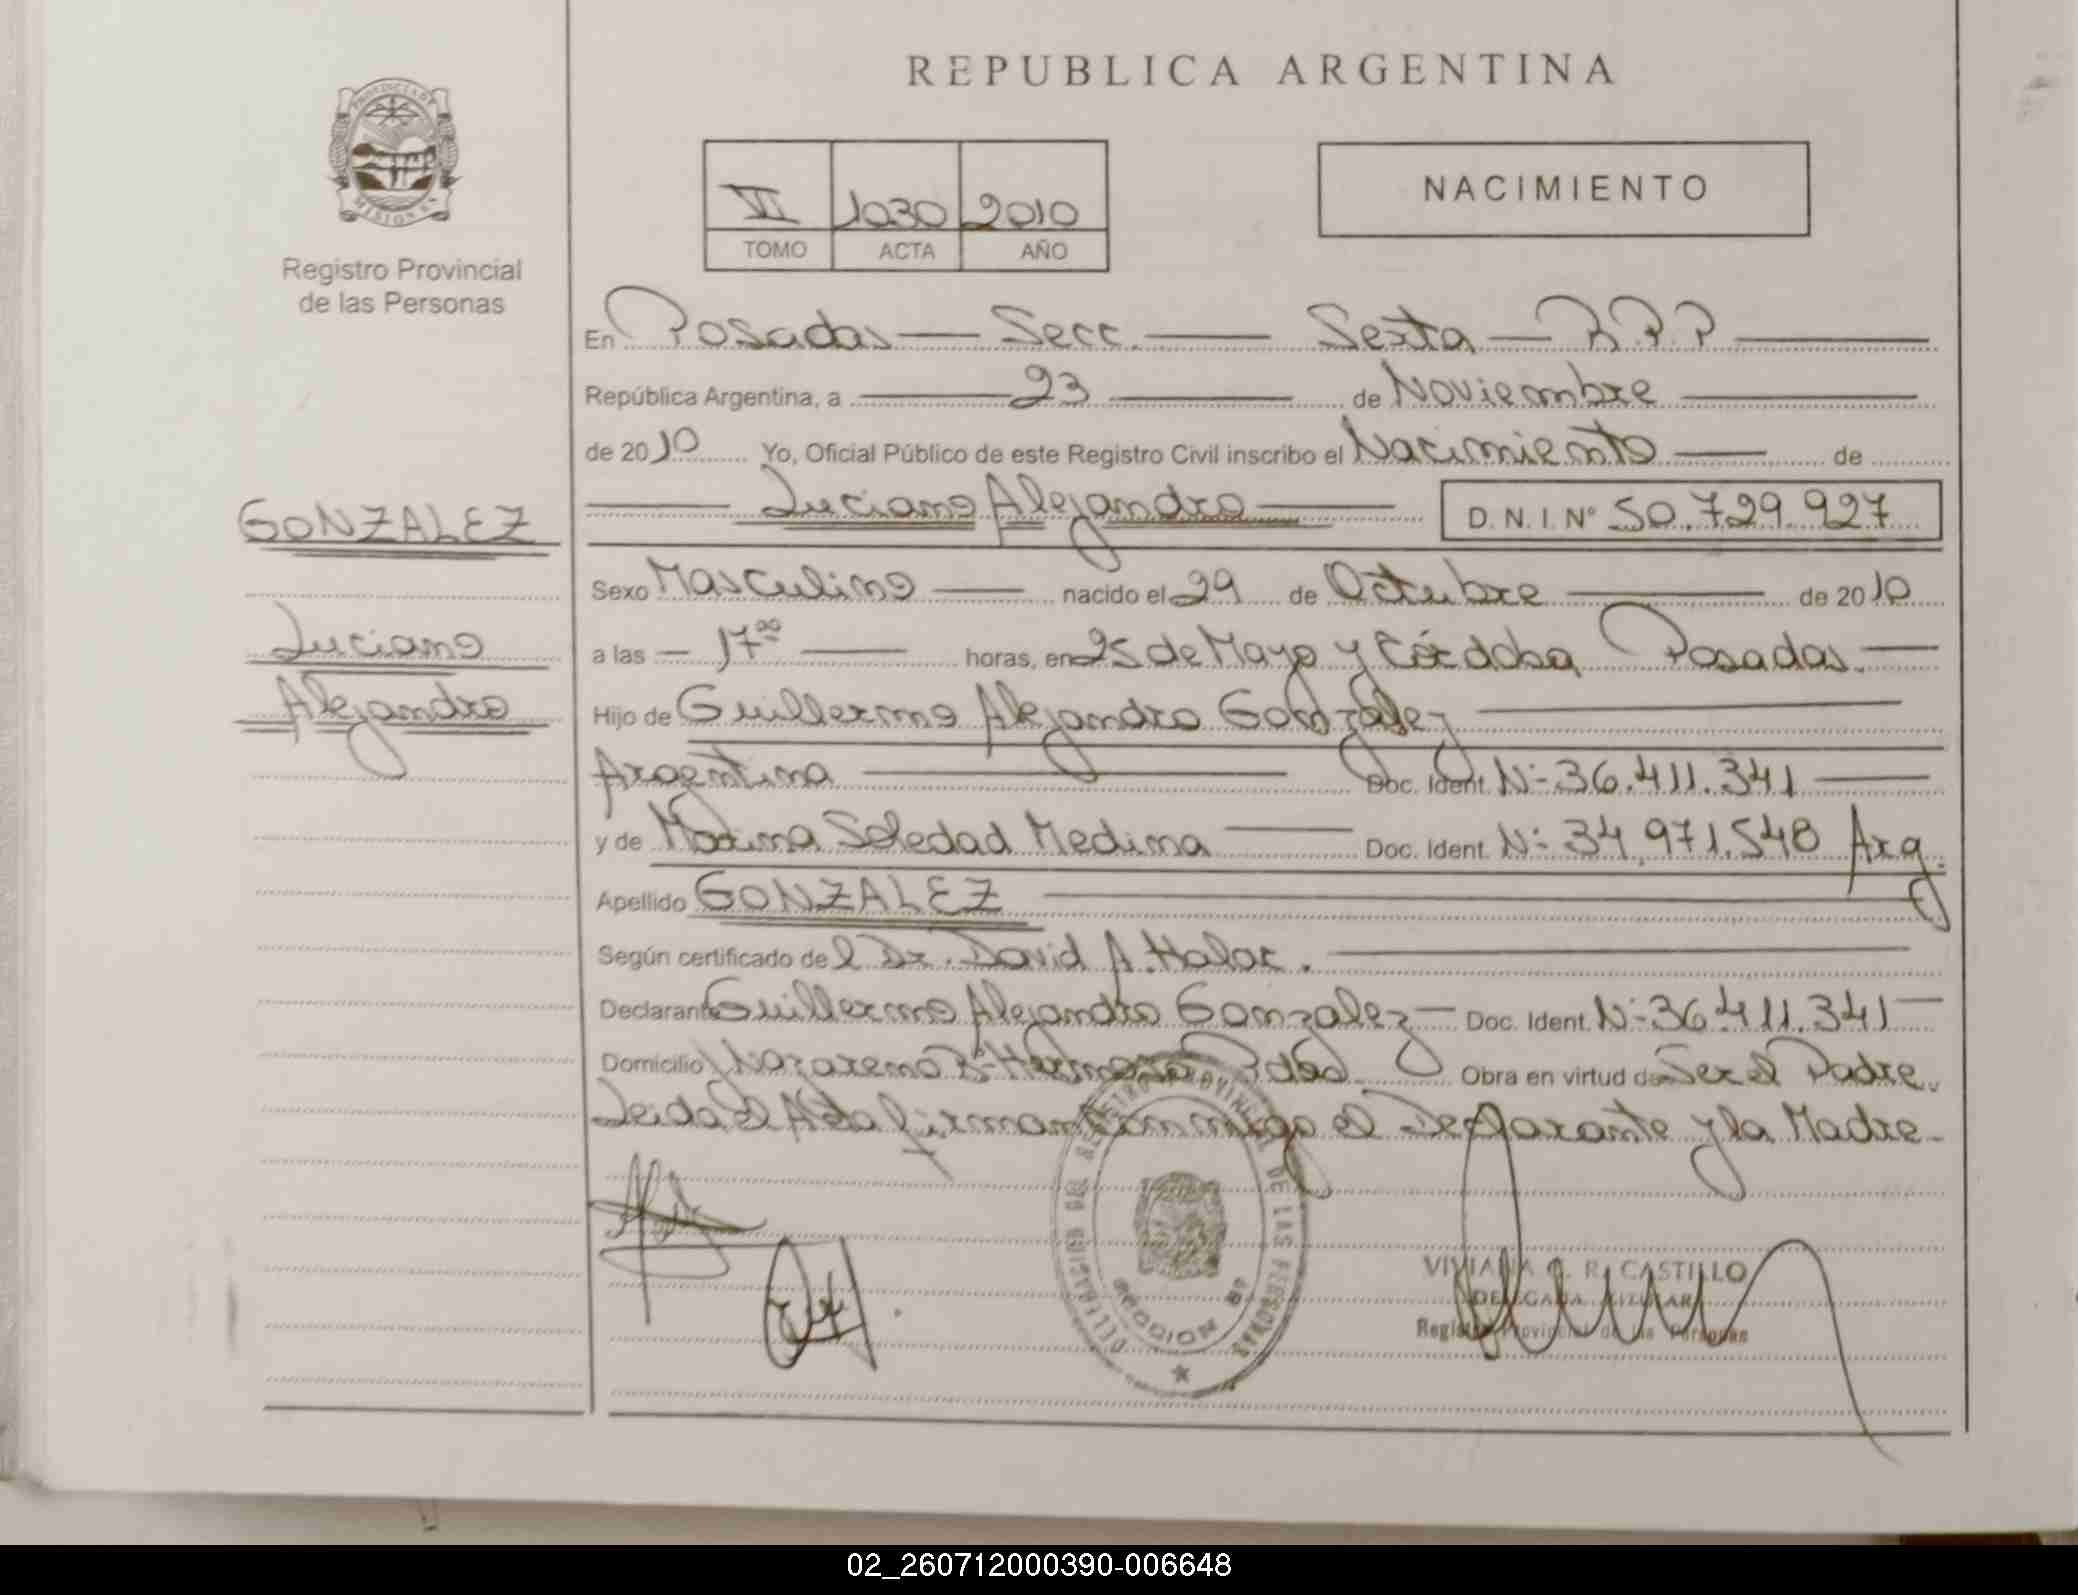 REPUBLICA ARGENTINA
PROVINCIA DE MISIONES
Registro Provincial
de las Personas
VI 1030 2010
TOMO ACTA AÑO
NACIMIENTO
En Posadas — Secc. — Sexta — R.P.P —
República Argentina, a — 23 — de Noviembre —
de 2010 Yo, Oficial Público de este Registro Civil inscribo el Nacimiento — de
— Luciano Alejandro — D. N. I. Nº 50.729.927
GONZALEZ
Luciano
Alejandro
Sexo Masculino — nacido el 29 de Octubre — de 2010
a las — 17⁰⁰ — horas, en 25 de Mayo y Córdoba Posadas. —
Hijo de Guillermo Alejandro Gonzalez —
Argentina — Doc. Ident. Nº 36.411.341 —
y de Marina Soledad Medina — Doc. Ident. Nº 34.971.548 Arg.
Apellido GONZALEZ —
Según certificado del Dr. David A. Halac. —
Declarante Guillermo Alejandro Gonzalez — Doc. Ident. Nº 36.411.341 —
Domicilio Nazareno Bº Pdas. Obra en virtud de Ser el Padre.
Leida el Acta firman conmigo el Declarante y la Madre -
DELEGACION DEL REGISTRO PROVINCIAL DE LAS PERSONAS
SECCION 6ª
VIVIANA R. CASTILLO
DELEGADA TITULAR
Registro Provincial de las Personas
02_260712000390-006648